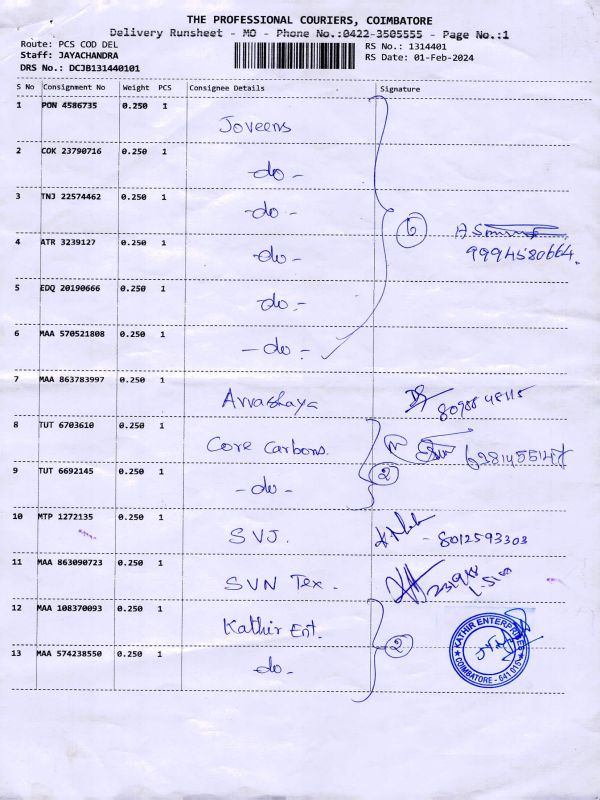 THE PROFESSIONAL COURIERS, COIMBATORE
Delivery Runsheet - MO - Phone No.:0422-3505555 - Page No.:1
Route: PCS COD DEL RS No.: 1314401
Staff: JAYACHANDRA RS Date: 01-Feb-2024
DRS No.: DCJB131440101
S No Consignment No Weight PCS Consignee Details Signature
1 PON 4586735 0.250 1 Joveens
2 COK 23790716 0.250 1 -do-
3 TNJ 22574462 0.250 1 -do-
6
4 ATR 3239127 0.250 1 -do- 9994580664.
5 EDQ 20190666 0.250 1 -do-
6 MAA 570521808 0.250 1 -do-
7 MAA 863783997 0.250 1 Avvashaya
8 TUT 6703610 0.250 1 Core Carbons.
9 TUT 6692145 0.250 1 -do- 2
10 MTP 1272135 0.250 1 SVJ. - 8012593303
11 MAA 863090723 0.250 1 SVN Tex.
12 MAA 108370093 0.250 1 Kathir Ent. 2
KATHIR ENTERPRISES
COIMBATORE - 641 010
13 MAA 574238550 0.250 1 -do-